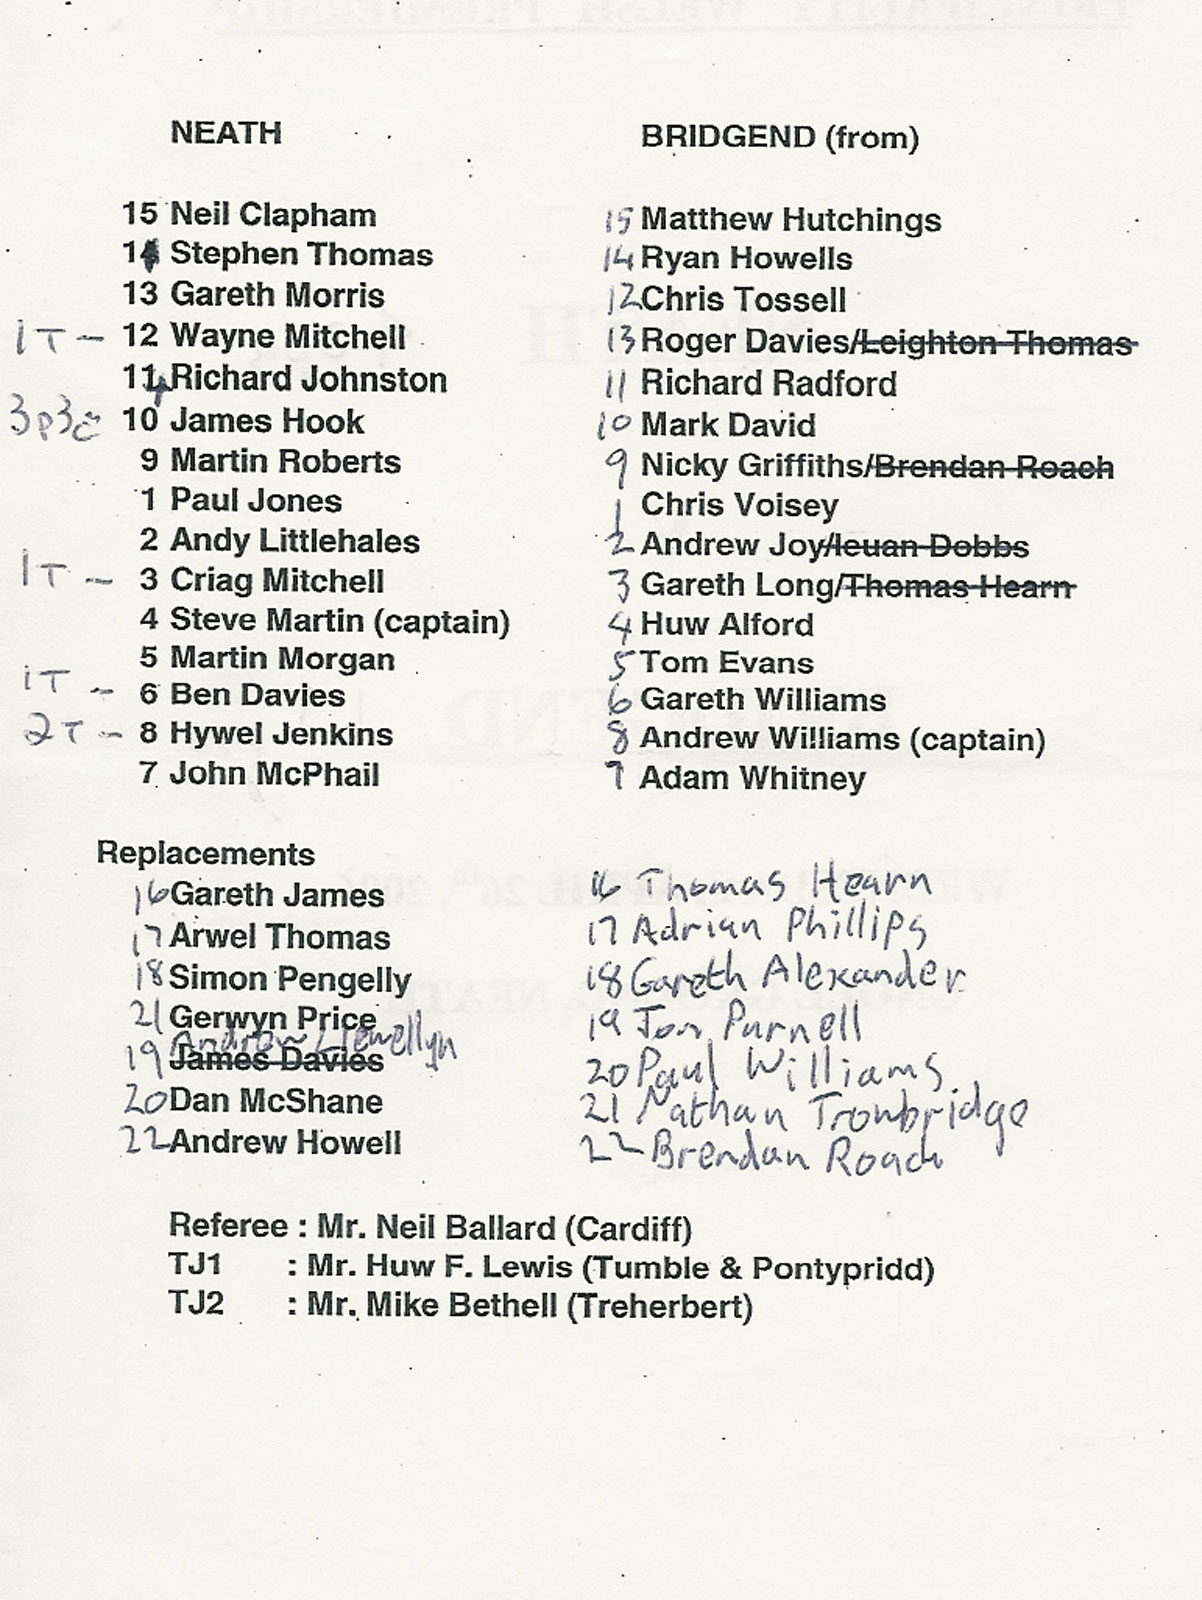 NEATH
15 Neil Clapham
Stephen Thomas
13 Gareth Morris
1T - 12 Wayne Mitchell
Richard Johnston
3p3c 10 James Hook
9 Martin Roberts
1 Paul Jones
2 Andy Littlehales
1T - 3 Criag Mitchell
4 Steve Martin (captain)
5 Martin Morgan
1T - 6 Ben Davies
2T - 8 Hywel Jenkins
7 John McPhail
Replacements
16 Gareth James
17 Arwel Thomas
18 Simon Pengelly
21 Gerwyn Price
Andrew Llewellyn
19 James Davies
20 Dan McShane
22 Andrew Howell
BRIDGEND (from)
15 Matthew Hutchings
14 Ryan Howells
12 Chris Tossell
13 Roger Davies/Leighton Thomas
11 Richard Radford
10 Mark David
9 Nicky Griffiths/Brendan Roach
1 Chris Voisey
2 Andrew Joy/Ieuan Dobbs
3 Gareth Long/Thomas Hearn
4 Huw Alford
5 Tom Evans
6 Gareth Williams
8 Andrew Williams (captain)
7 Adam Whitney
16 Thomas Hearn
17 Adrian Phillips
18 Gareth Alexander
19 Purnell
20 Paul Williams
21 Nathan Trowbridge
22 Brendan Roach
Referee : Mr. Neil Ballard (Cardiff)
TJ1 : Mr. Huw F. Lewis (Tumble & Pontypridd)
TJ2 : Mr. Mike Bethell (Treherbert)